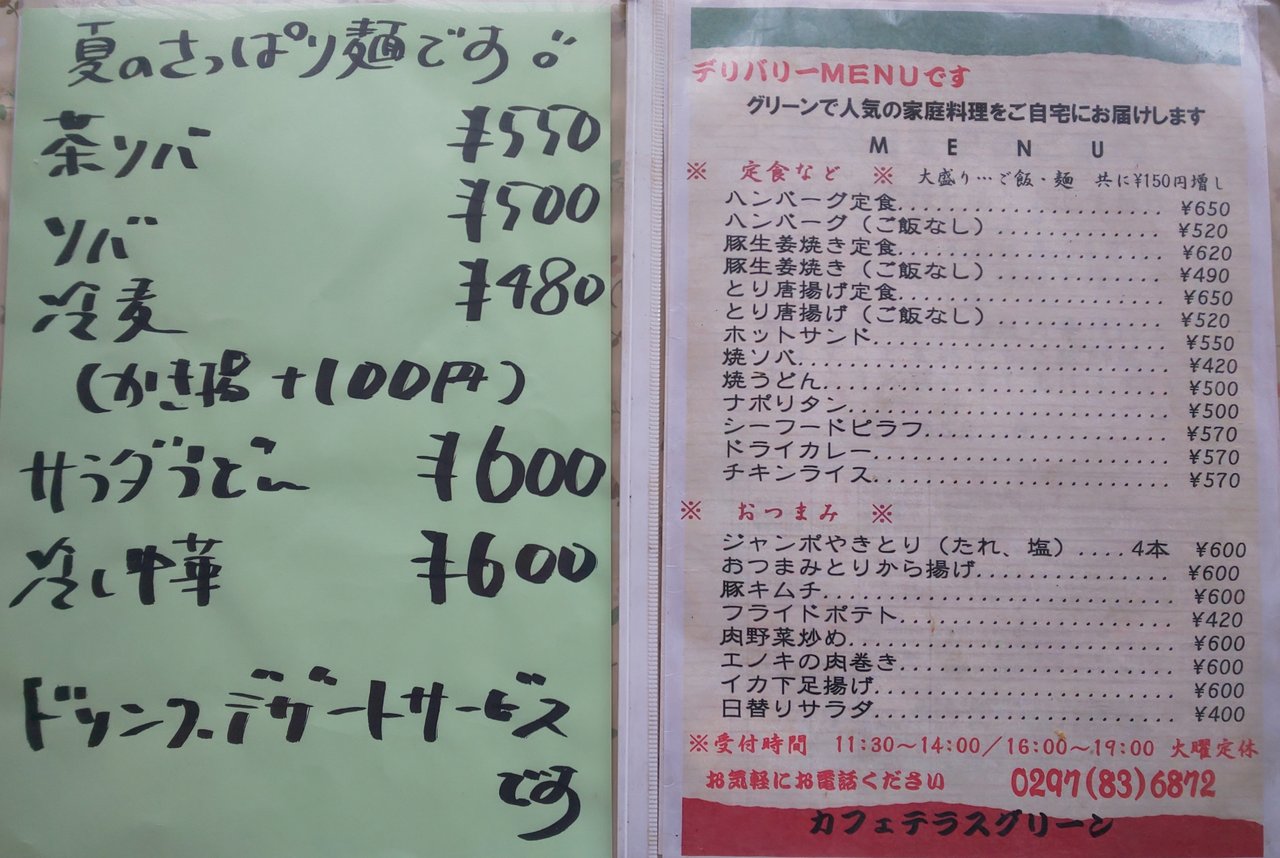 夏のさっぱり麺です。
茶ソバ ¥550
ソバ ¥500
冷麦 ¥480
(かき揚 +100円)
サラダうどん ¥600
冷し中華 ¥600
ドリンク、デザートサービス
です
デリバリーMENUです
グリーンで人気の家庭料理をご自宅にお届けします
MENU
※ 定食など ※ 大盛り…ご飯・麺 共に¥150円増し
ハンバーグ定食..................... ¥650
ハンバーグ(ご飯なし)............. ¥520
豚生姜焼き定食..................... ¥620
豚生姜焼き(ご飯なし)............. ¥490
とり唐揚げ定食..................... ¥650
とり唐揚げ(ご飯なし)............. ¥520
ホットサンド....................... ¥550
焼ソバ............................. ¥420
焼うどん........................... ¥500
ナポリタン......................... ¥500
シーフードピラフ................... ¥570
ドライカレー....................... ¥570
チキンライス....................... ¥570
※ おつまみ ※
ジャンボやきとり(たれ、塩)....4本 ¥600
おつまみとりから揚げ............... ¥600
豚キムチ........................... ¥600
フライドポテト..................... ¥420
肉野菜炒め......................... ¥600
エノキの肉巻き..................... ¥600
イカ下足揚げ....................... ¥600
日替りサラダ....................... ¥400
※受付時間 11:30~14:00/16:00~19:00 火曜定休
お気軽にお電話ください 0297(83)6872
カフェテラスグリーン